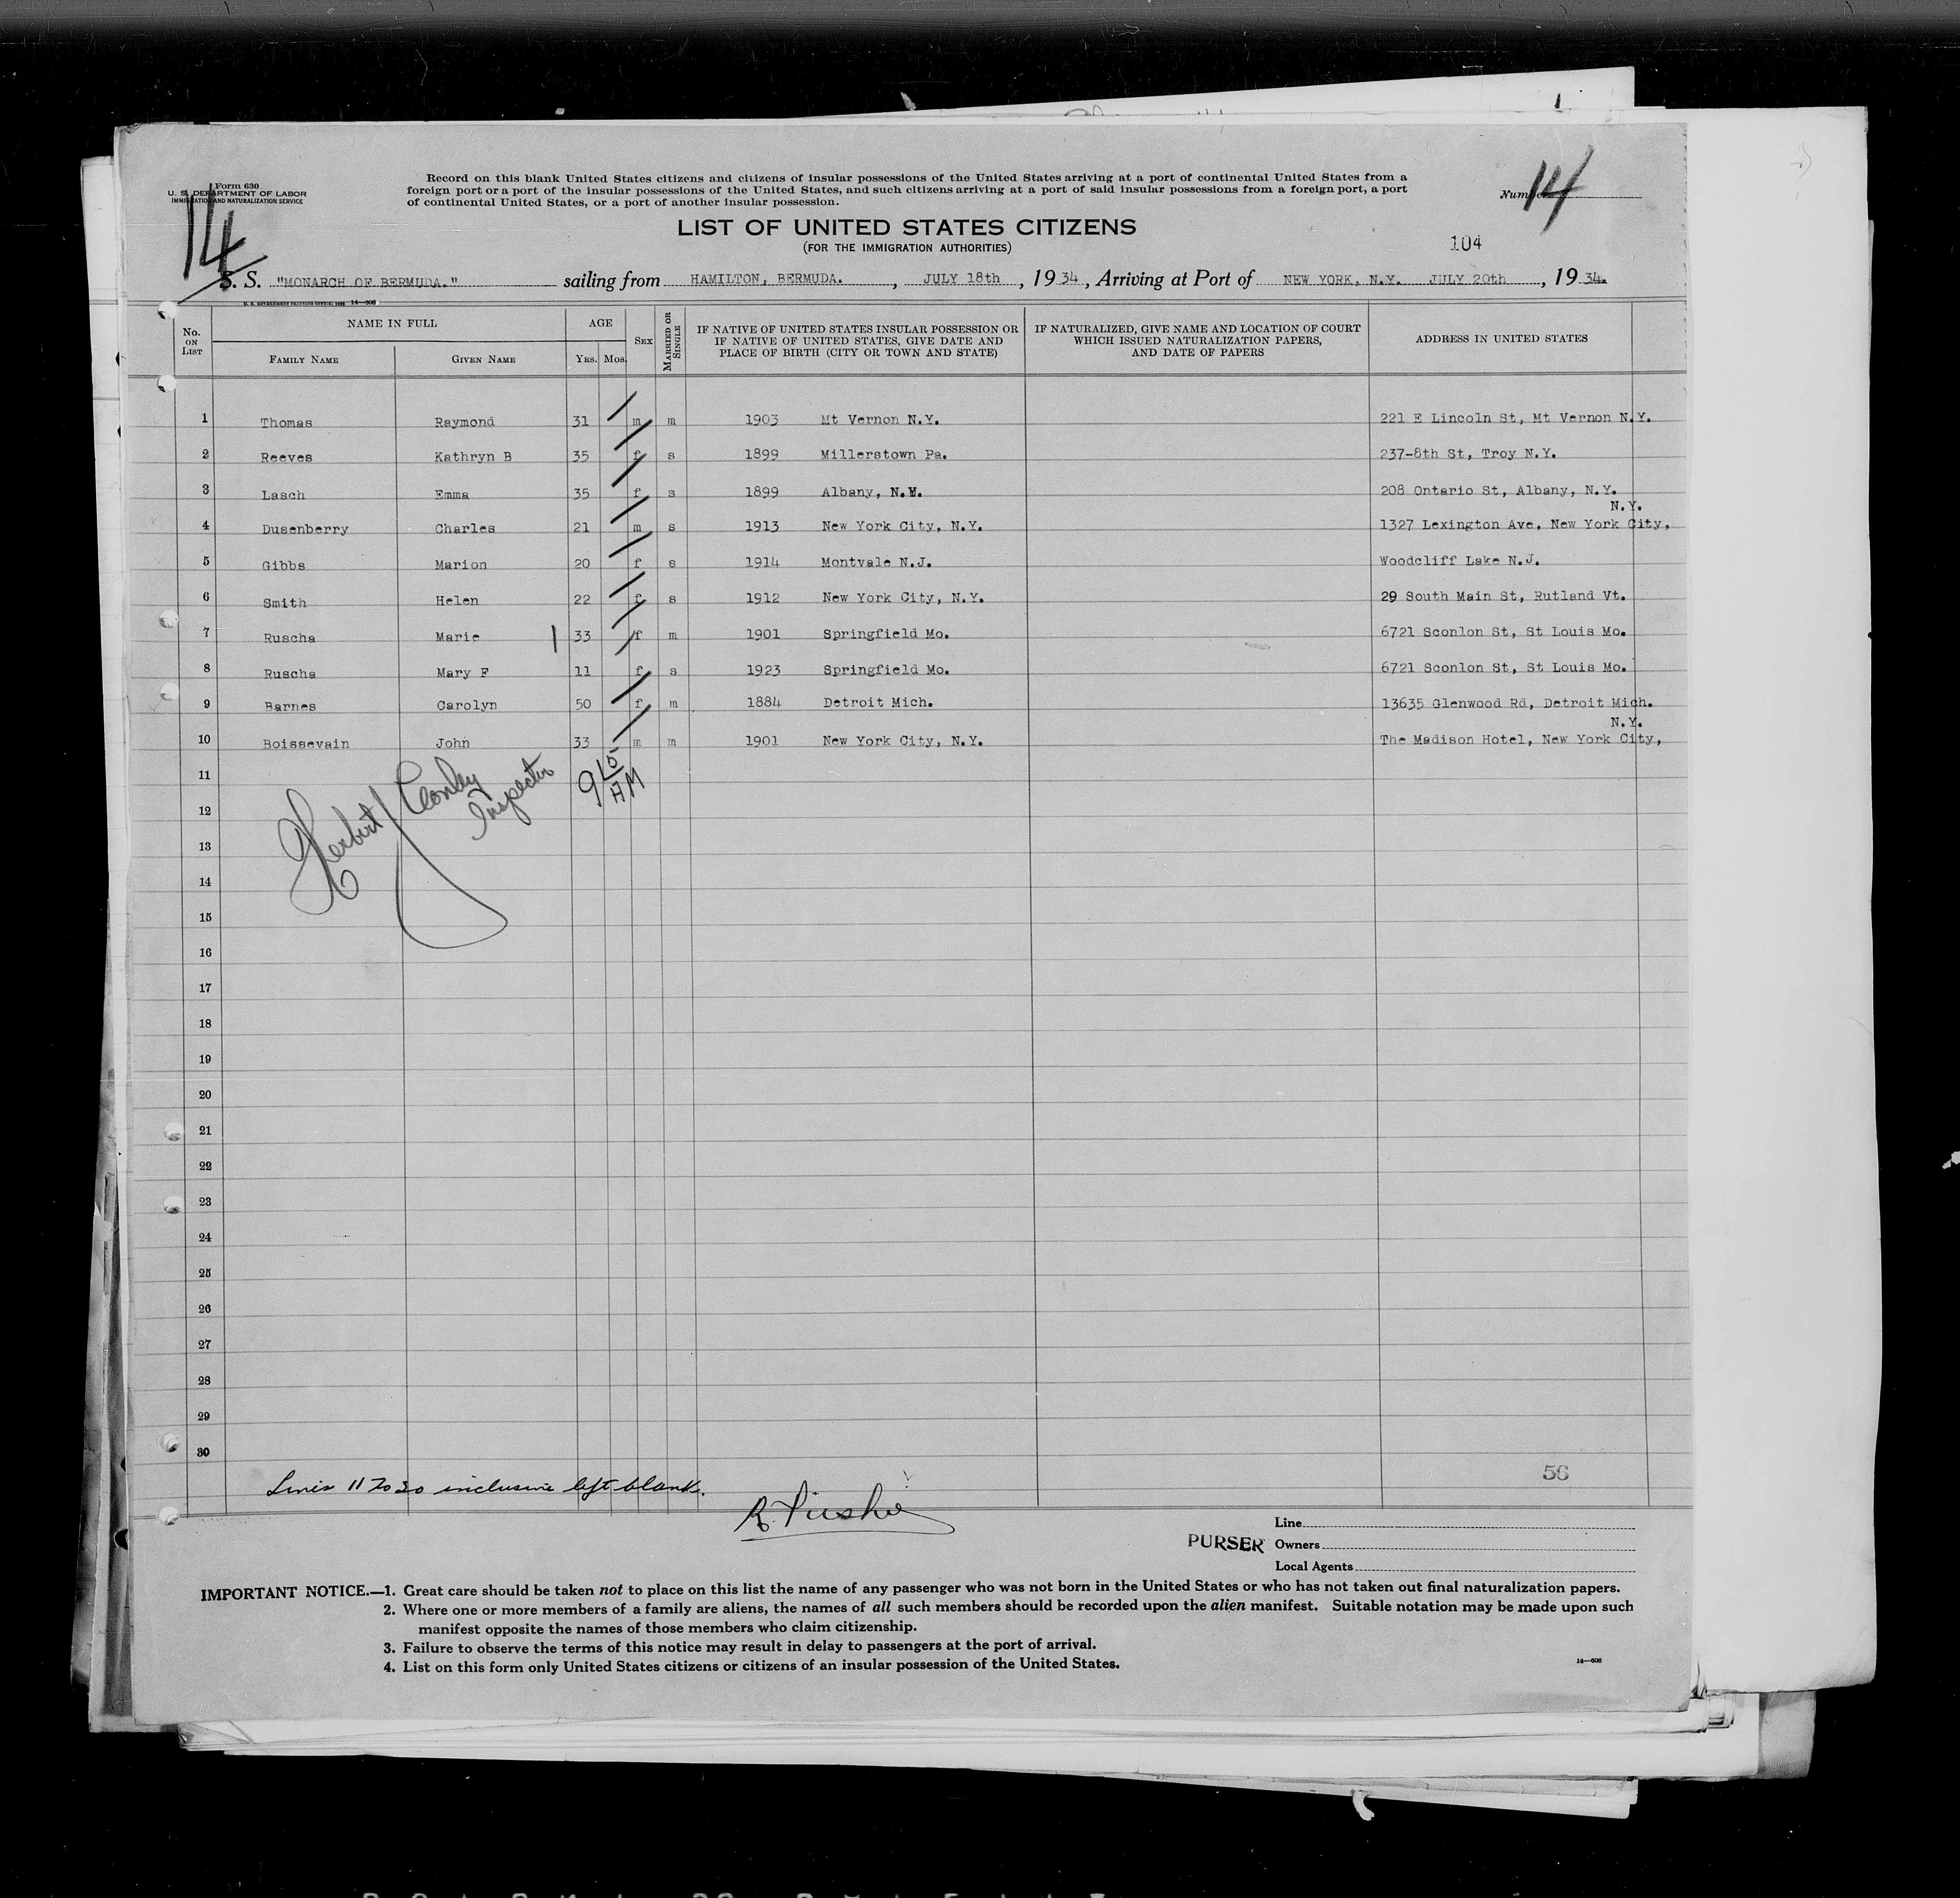 Form 630
U. S. DEPARTMENT OF LABOR
IMMIGRATION AND NATURALIZATION SERVICE
14
Record on this blank United States citizens and citizens of insular possessions of the United States arriving at a port of continental United States from a
foreign port or a port of the insular possessions of the United States, and such citizens arriving at a port of said insular possessions from a foreign port, a port
of continental United States, or a port of another insular possession.
Number 14
LIST OF UNITED STATES CITIZENS
(FOR THE IMMIGRATION AUTHORITIES)
104
S. S. "MONARCH OF BERMUDA." sailing from HAMILTON, BERMUDA. , JULY 18th , 19 34 , Arriving at Port of NEW YORK, N.Y. JULY 20th , 19 34.
No. ON LIST
NAME IN FULL
FAMILY NAME
GIVEN NAME
AGE
YRS. MOS.
SEX
MARRIED OR SINGLE
IF NATIVE OF UNITED STATES INSULAR POSSESSION OR
IF NATIVE OF UNITED STATES, GIVE DATE AND
PLACE OF BIRTH (CITY OR TOWN AND STATE)
IF NATURALIZED, GIVE NAME AND LOCATION OF COURT
WHICH ISSUED NATURALIZATION PAPERS,
AND DATE OF PAPERS
ADDRESS IN UNITED STATES
1 Thomas Raymond 31 m m 1903 Mt Vernon N.Y. 221 E Lincoln St, Mt Vernon N.Y.
2 Reeves Kathryn B 35 f s 1899 Millerstown Pa. 237-8th St, Troy N.Y.
3 Lasch Emma 35 f s 1899 Albany, N.Y. 208 Ontario St, Albany, N.Y.
N.Y.
4 Dusenberry Charles 21 m s 1913 New York City, N.Y. 1327 Lexington Ave, New York City,
5 Gibbs Marion 20 f s 1914 Montvale N.J. Woodcliff Lake N.J.
6 Smith Helen 22 f s 1912 New York City, N.Y. 29 South Main St, Rutland Vt.
7 Ruscha Marie 33 f m 1901 Springfield Mo. 6721 Sconlon St, St Louis Mo.
8 Ruscha Mary F 11 f s 1923 Springfield Mo. 6721 Sconlon St, St Louis Mo.
9 Barnes Carolyn 50 f m 1884 Detroit Mich. 13635 Glenwood Rd, Detroit Mich.
N.Y.
10 Boissevain John 33 m m 1901 New York City, N.Y. The Madison Hotel, New York City,
Herbert J Conley
Inspector
9 15 AM
11
12
13
14
15
16
17
18
19
20
21
22
23
24
25
26
27
28
29
30
56
Lines 11 to 30 inclusive left blank.
PURSER
Line
Owners
Local Agents
IMPORTANT NOTICE.—1. Great care should be taken not to place on this list the name of any passenger who was not born in the United States or who has not taken out final naturalization papers.
2. Where one or more members of a family are aliens, the names of all such members should be recorded upon the alien manifest. Suitable notation may be made upon such
manifest opposite the names of those members who claim citizenship.
3. Failure to observe the terms of this notice may result in delay to passengers at the port of arrival.
4. List on this form only United States citizens or citizens of an insular possession of the United States.
14—608